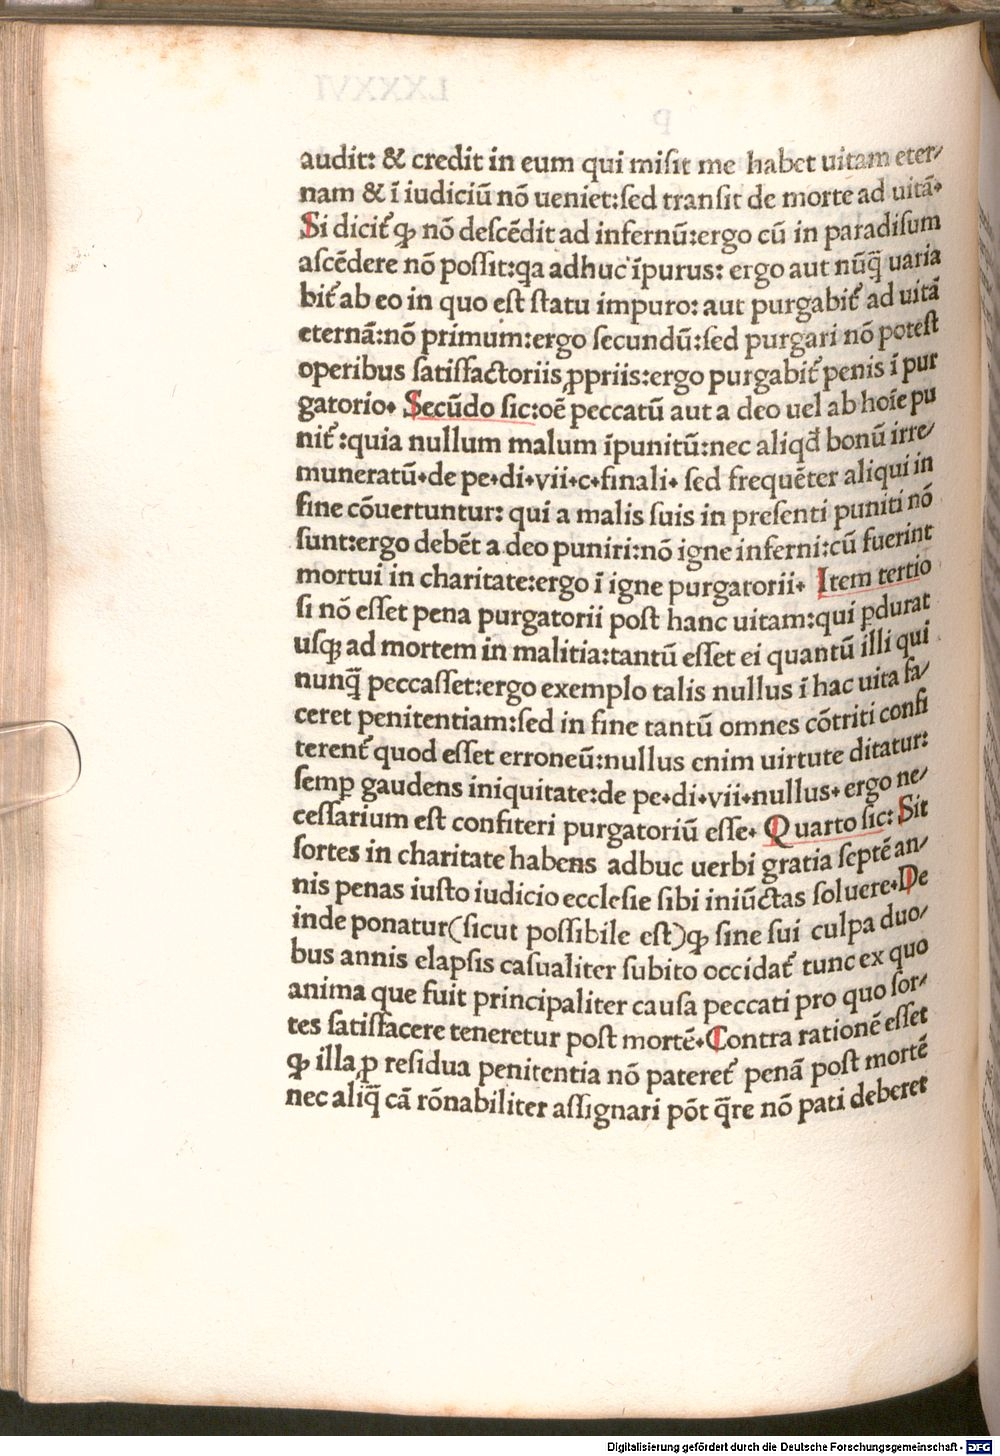 audit: & credit in eum qui misit me habet uitam eter/
nam & ī iudiciū nō ueniet:sed transit de morte ad uitā.
Si dicit̄ ꝙ nō descēdit ad infernū:ergo cū in paradisum
ascēdere nō possit:qa adhuc īpurus: ergo aut nūq̄ uaria
bit̄ ab eo in quo est statu impuro: aut purgabit̄ ad uitā
eternā:nō primum:ergo secundū:sed purgari nō potest
operibus satisfactoriis ꝓpriis:ergo purgabit̄ penis ī pur
gatorio. Secūdo sic:oē peccatū aut a deo uel ab hoīe pu
nit̄ :quia nullum malum īpunitū:nec aliqd̄ bonū irre/
muneratū.de pe.di.vii.c.finali. sed frequēter aliqui in
fine cōuertuntur: qui a malis suis in presenti puniti nō
sunt:ergo debēt a deo puniri:nō igne inferni:cū fuerint
mortui in charitate:ergo ī igne purgatorii. Item tertio
si nō esset pena purgatorii post hanc uitam:qui ꝑdurat
usqꝫ ad mortem in malitia:tantū esset ei quantū illi qui
nunq̄ peccasset:ergo exemplo talis nullus ī hac uita fa/
ceret penitentiam:sed in fine tantū omnes cōtriti confi
terent̄ quod esset erroneū:nullus enim uirtute ditatur:
semꝑ gaudens iniquitate:de pe.di.vii.nullus. ergo ne/
cessarium est confiteri purgatoriū esse. Quarto sic: Sit
sortes in charitate habens adbuc uerbi gratia septē an/
nis penas iusto iudicio ecclesie sibi iniūctas soluere.De
inde ponatur(sicut possibile est)ꝙ sine sui culpa duo/
bus annis elapsis casualiter subito occidat̄ tunc ex quo
anima que fuit principaliter causa peccati pro quo sor/
tes satisfacere teneretur post mortē.Contra rationē esset
ꝙ illa ꝓ residua penitentia nō pateret̄ penā post mortē
nec aliq̄ cā rōnabiliter assignari pōt q̄re nō pati deberet
Digitalisierung gefördert durch die Deutsche Forschungsgemeinschaft - DFG